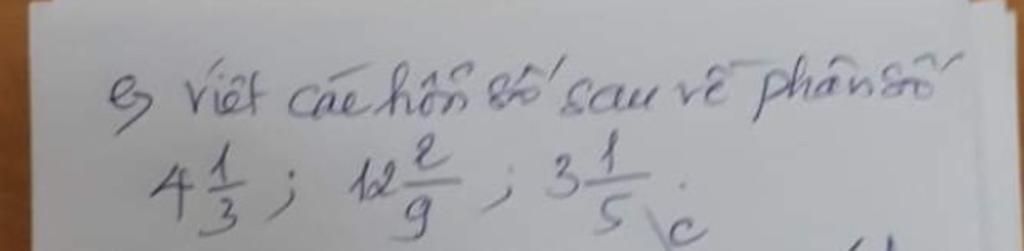 e, viết các hỗn số sau về phân số
4 1/3 ; 12 2/9 ; 3 1/5 .